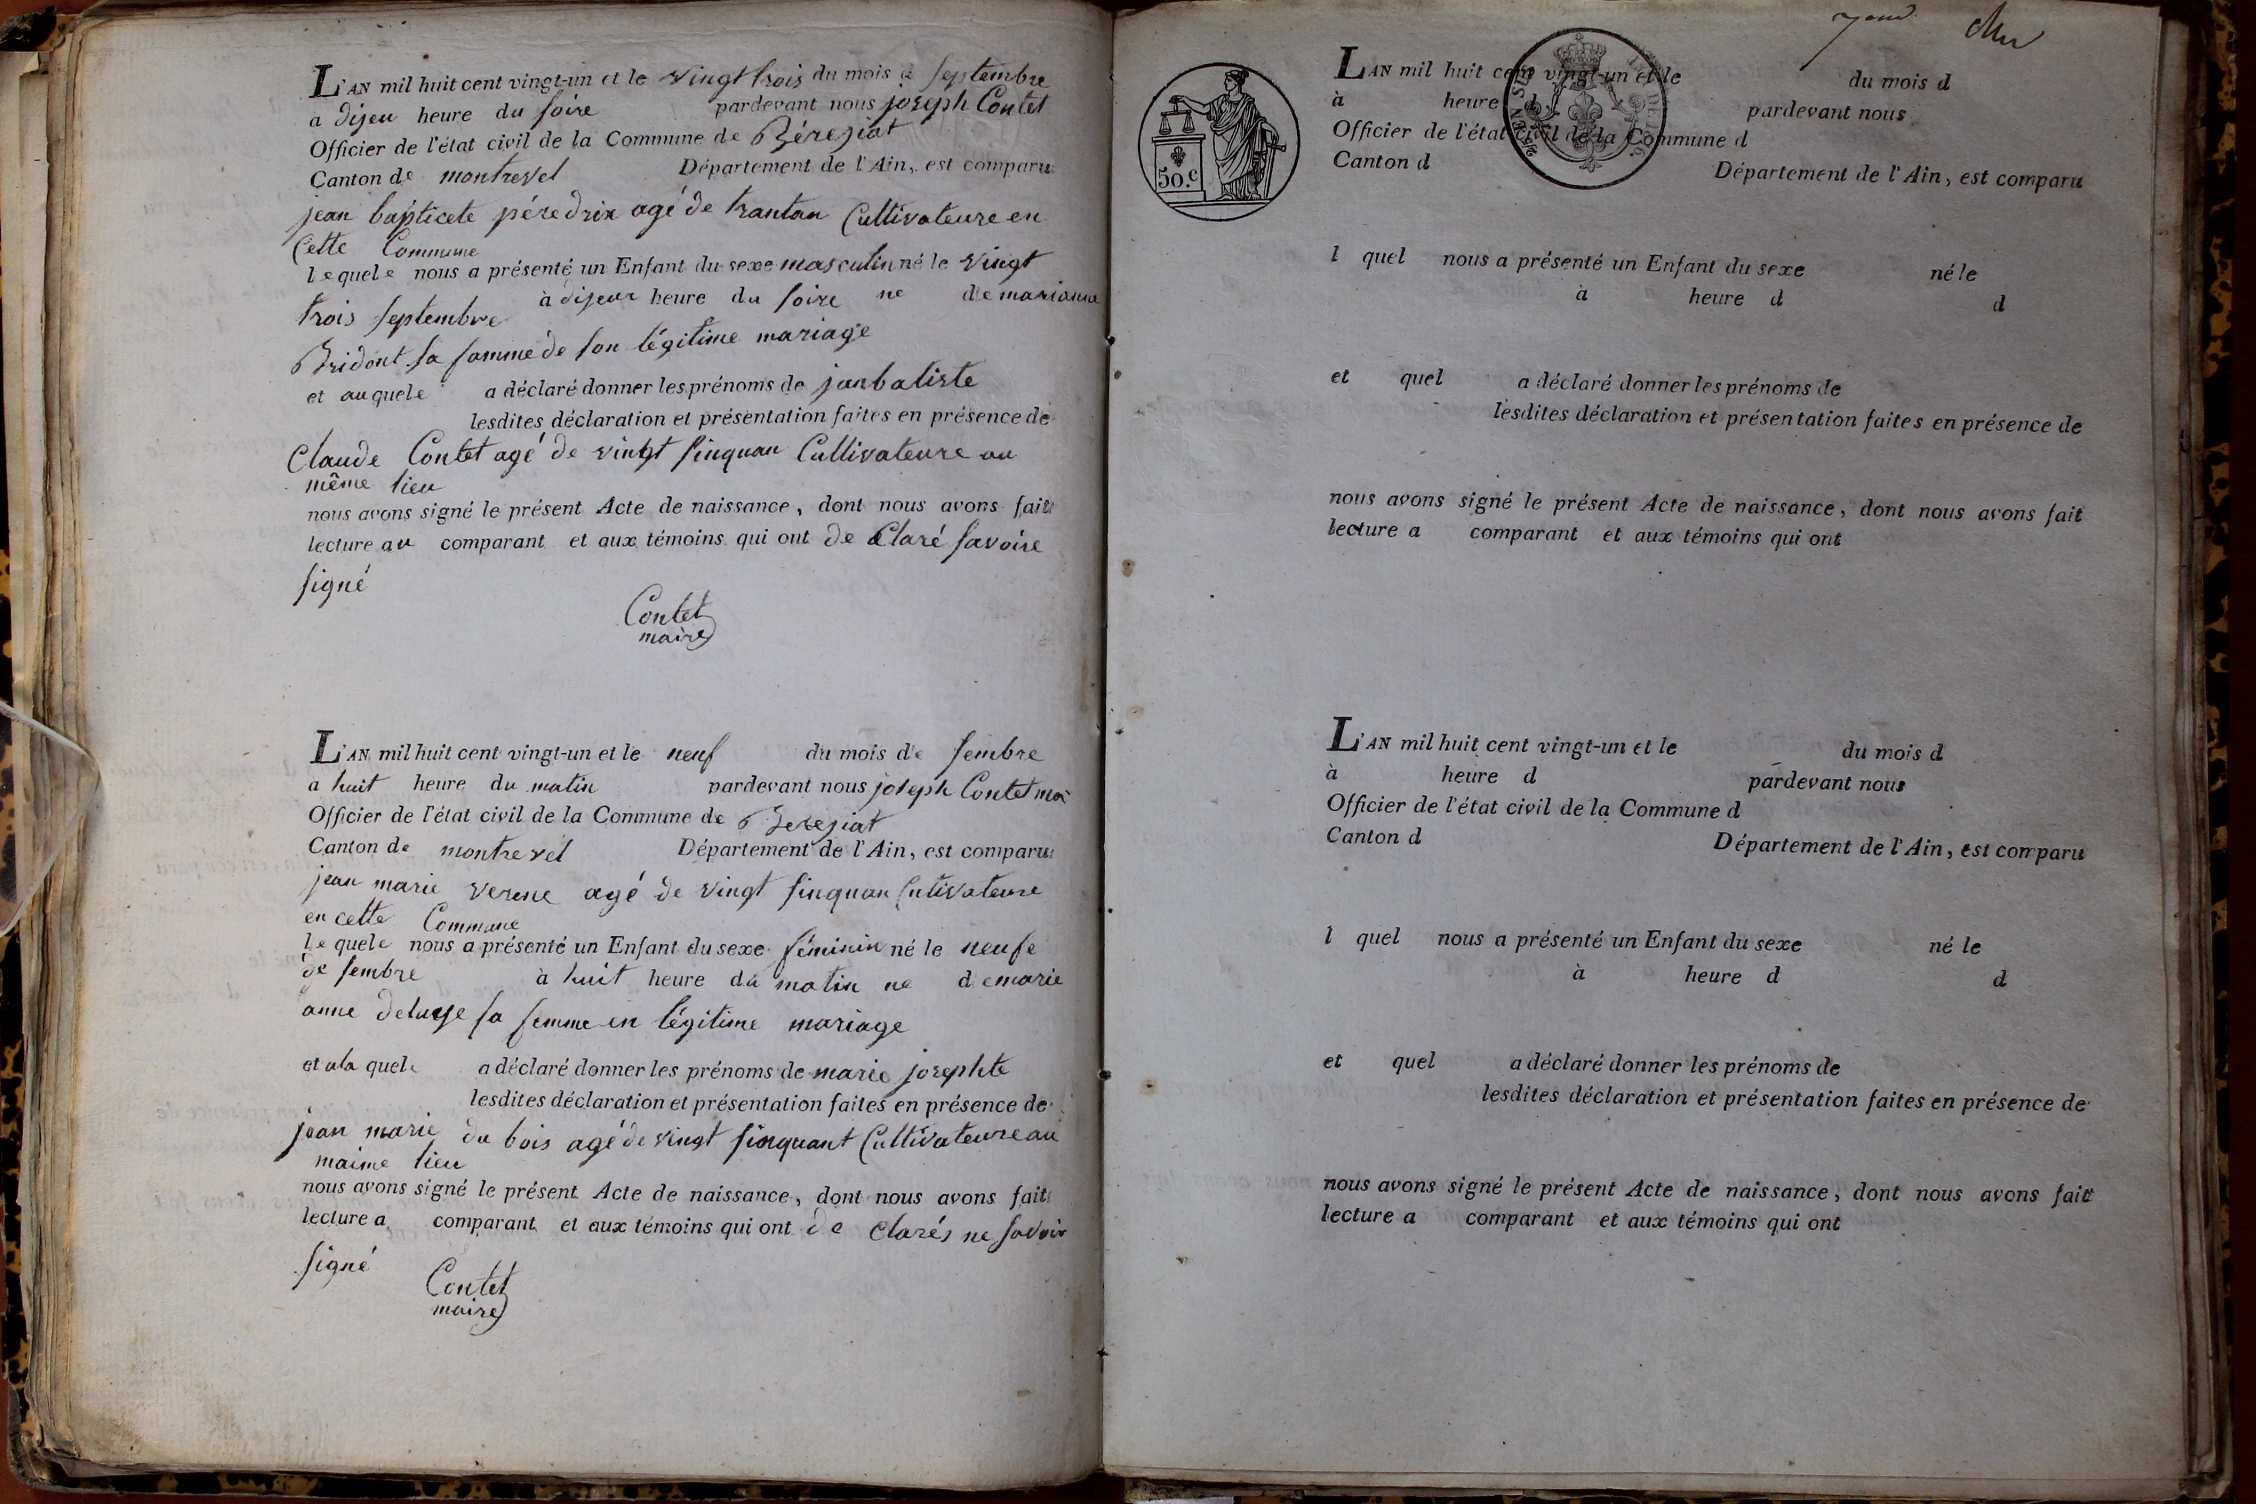 L'AN mil huit cent vingt-un et le vingt trois du mois de septembre
a dizeu heure du soire pardevant nous joseph Contet
Officier de l'état civil de la Commune de Béreziat
Canton de montrevel Département de l'Ain, est comparu
jean bapticete péredrix agé de trantan Cultivateure en
Cette Commune
lequele nous a présenté un Enfant du sexe masculin né le vingt
trois septembre à dizeur heure du soire ne de marianne
Bridont sa famme de son légitime mariage
et au quele a déclaré donner les prénoms de janbatiste
lesdites déclaration et présentation faites en présence de
Claude Contet agé de vingt sinquan Cultivateure au
même lieu
nous avons signé le présent Acte de naissance, dont nous avons fait
lecture au comparant et aux témoins qui ont de Claré savoire
signé
Contet
maire
L'AN mil huit cent vingt-un et le neuf du mois de sembre
a huit heure du matin pardevant nous joseph Contet mai
Officier de l'état civil de la Commune de Bereziat
Canton de montrevel Département de l'Ain, est comparu
jean marie verene agé de vingt sinquan Cutivateure
en cette Commune
lequele nous a présenté un Enfant du sexe féminin né le neufe
de sembre à huit heure du matin ne de marie
anne deluye sa femme en légitime mariage
et a la quele a déclaré donner les prénoms de marie josephte
lesdites déclaration et présentation faites en présence de
jean marie du bois agé de vingt sinquant Cultivateure au
maime lieu
nous avons signé le présent Acte de naissance, dont nous avons fait
lecture a comparant et aux témoins qui ont de clarés ne savoir
signé
Contet
maire
L'AN mil huit cent vingt-un et le du mois d
à heure d pardevant nous
Officier de l'état civil de la Commune d
Canton d Département de l'Ain, est comparu
50.c
l quel nous a présenté un Enfant du sexe né le
à heure d d
et quel a déclaré donner les prénoms de
lesdites déclaration et présentation faites en présence de
nous avons signé le présent Acte de naissance, dont nous avons fait
lecture a comparant et aux témoins qui ont
L'AN mil huit cent vingt-un et le du mois d
à heure d pardevant nous
Officier de l'état civil de la Commune d
Canton d Département de l'Ain, est comparu
l quel nous a présenté un Enfant du sexe né le
à heure d d
et quel a déclaré donner les prénoms de
lesdites déclaration et présentation faites en présence de
nous avons signé le présent Acte de naissance, dont nous avons fait
lecture a comparant et aux témoins qui ont